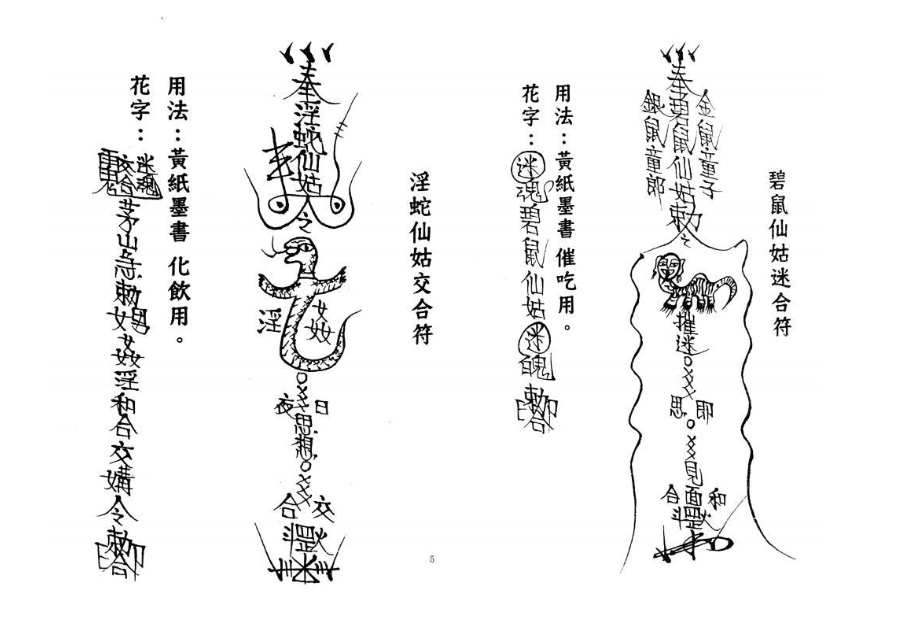 碧鼠仙姑迷合符
金鼠童子
奉碧鼠仙姑勅
銀鼠童郎
迷
即思
見面
和合
用法：黃紙墨書 催吃用。
花字：迷魂碧鼠仙姑迷魄勅
淫蛇仙姑交合符
奉淫蛇仙姑令
姦淫
日夜思想
交合
用法：黃紙墨書 化飲用。
花字：迷魂茅山急勅男女姦淫和合交媾令勅
5